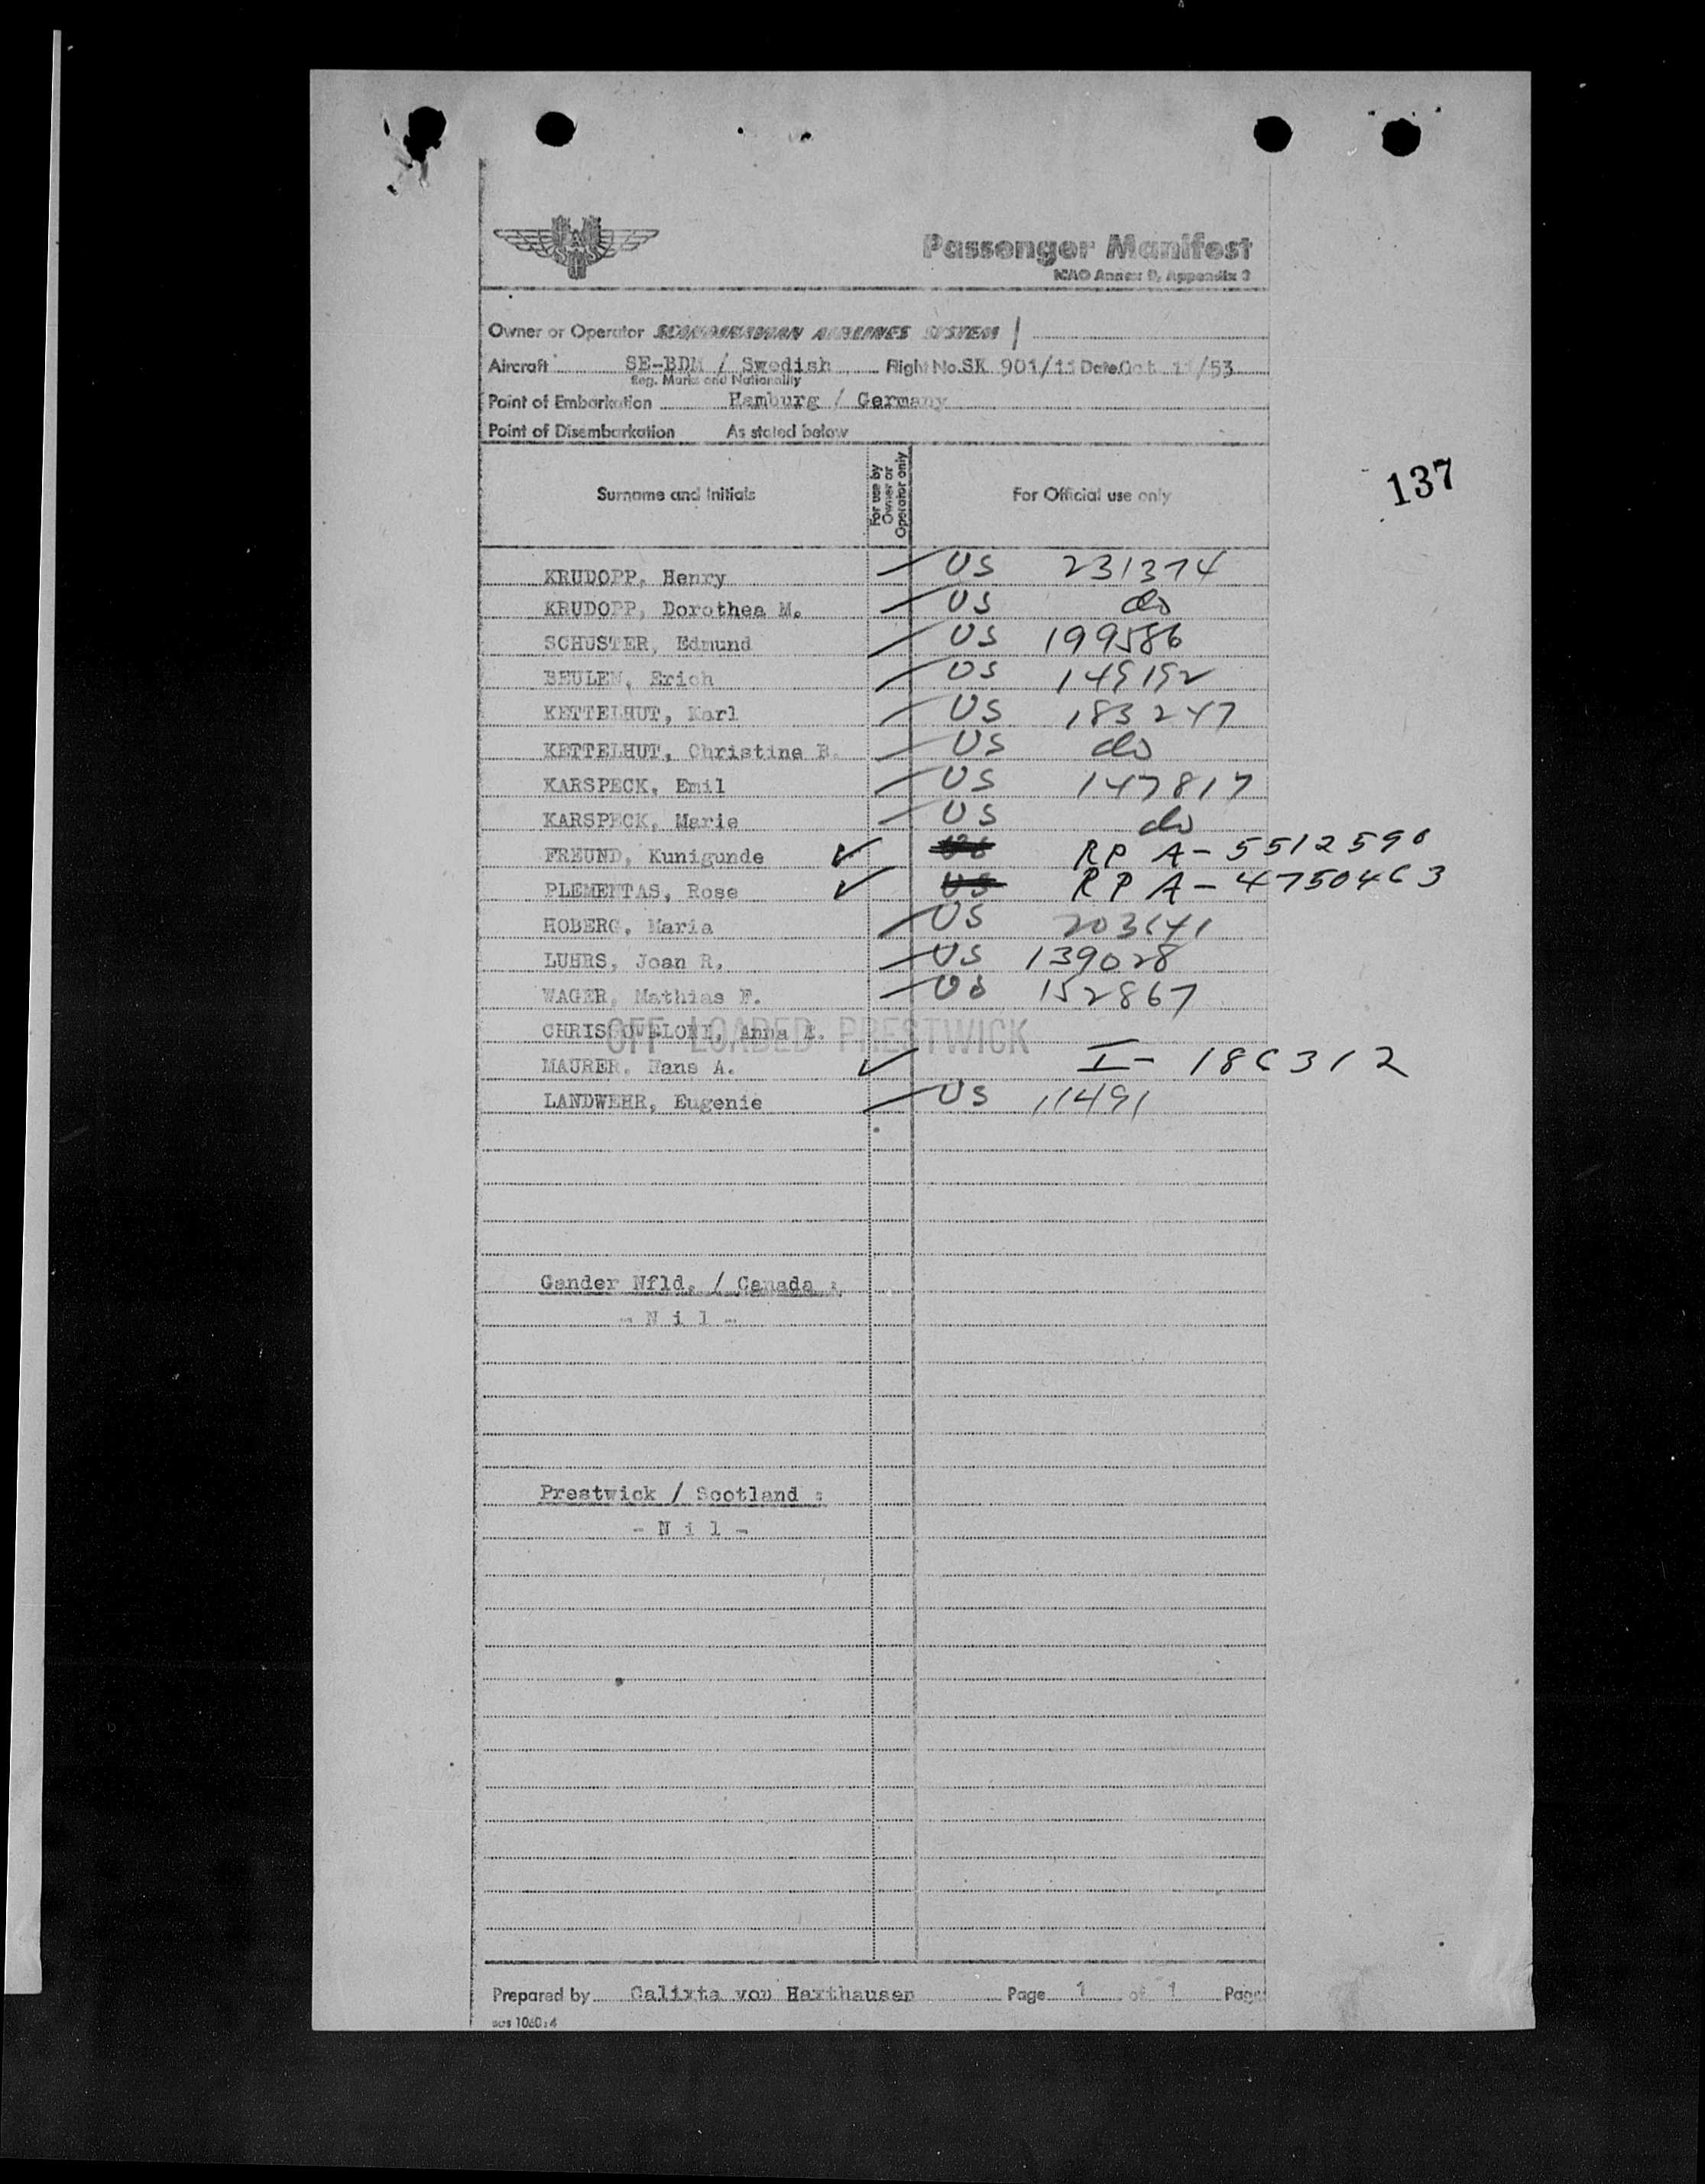 SAS
Passenger Manifest
ICAO Annex 9, Appendix 3
Owner or Operator SCANDINAVIAN AIRLINES SYSTEM
Aircraft SE-BDM / Swedish Flight No. SK 901/11 Date Oct 11/53
Reg. Marks and Nationality
Point of Embarkation Hamburg / Germany
Point of Disembarkation As stated below
Surname and Initials For use by Owner or Operator only For Official use only
137
KRUDOPP, Henry US 231374
KRUDOPP, Dorothea M. US do
SCHUSTER, Edmund US 199586
BEULEN, Erich US 149192
KETTELHUT, Karl US 183247
KETTELHUT, Christine B. US do
KARSPECK, Emil US 147817
KARSPECK, Marie US do
FREUND, Kunigunde ✓ RP A-5512590
PLEMENTAS, Rose ✓ US RP A-4750463
HOBERG, Maria US 203641
LUHRS, Joan R. US 139028
WAGER, Mathias F. US 152867
Anna E.
OFF LOADED PRESTWICK
MAURER, Hans A. ✓ I-186312
LANDWEHR, Eugenie US 11491
Gander Nfld. / Canada :
- N i l -
Prestwick / Scotland :
- N i l -
Prepared by Calixta von Haxthausen Page 1 of 1 Page
SAS 1060:4